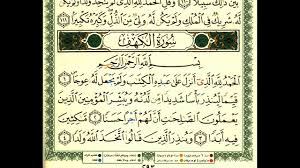 بين ذلك سبيلا ۝ وقل الحمد لله الذي لم يتخذ ولدا ولم يكن
له شريك في الملك ولم يكن له ولي من الذل وكبره تكبيرا ۝
سورة الكهف
بسم الله الرحمن الرحيم
الحمد لله الذي أنزل على عبده الكتب ولم يجعل له عوجا ۝
قيما لينذر بأسا شديدا من لدنه ويبشر المؤمنين الذين
يعملون الصلحت أن لهم أجرا حسنا ۝ مكثين
فيه أبدا ۝ وينذر الذين قالوا اتخذ الله ولدا ۝